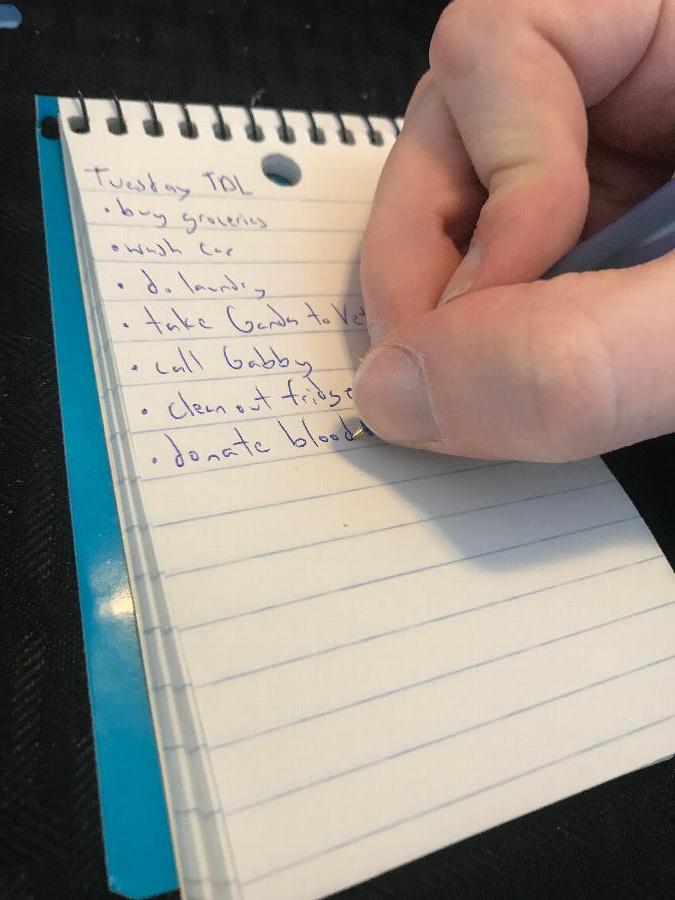 Tuesday TDL
• buy groceries
• wash car
• do laundry
• take to Vet
• call Gabby
• clean out fridge
• donate blood